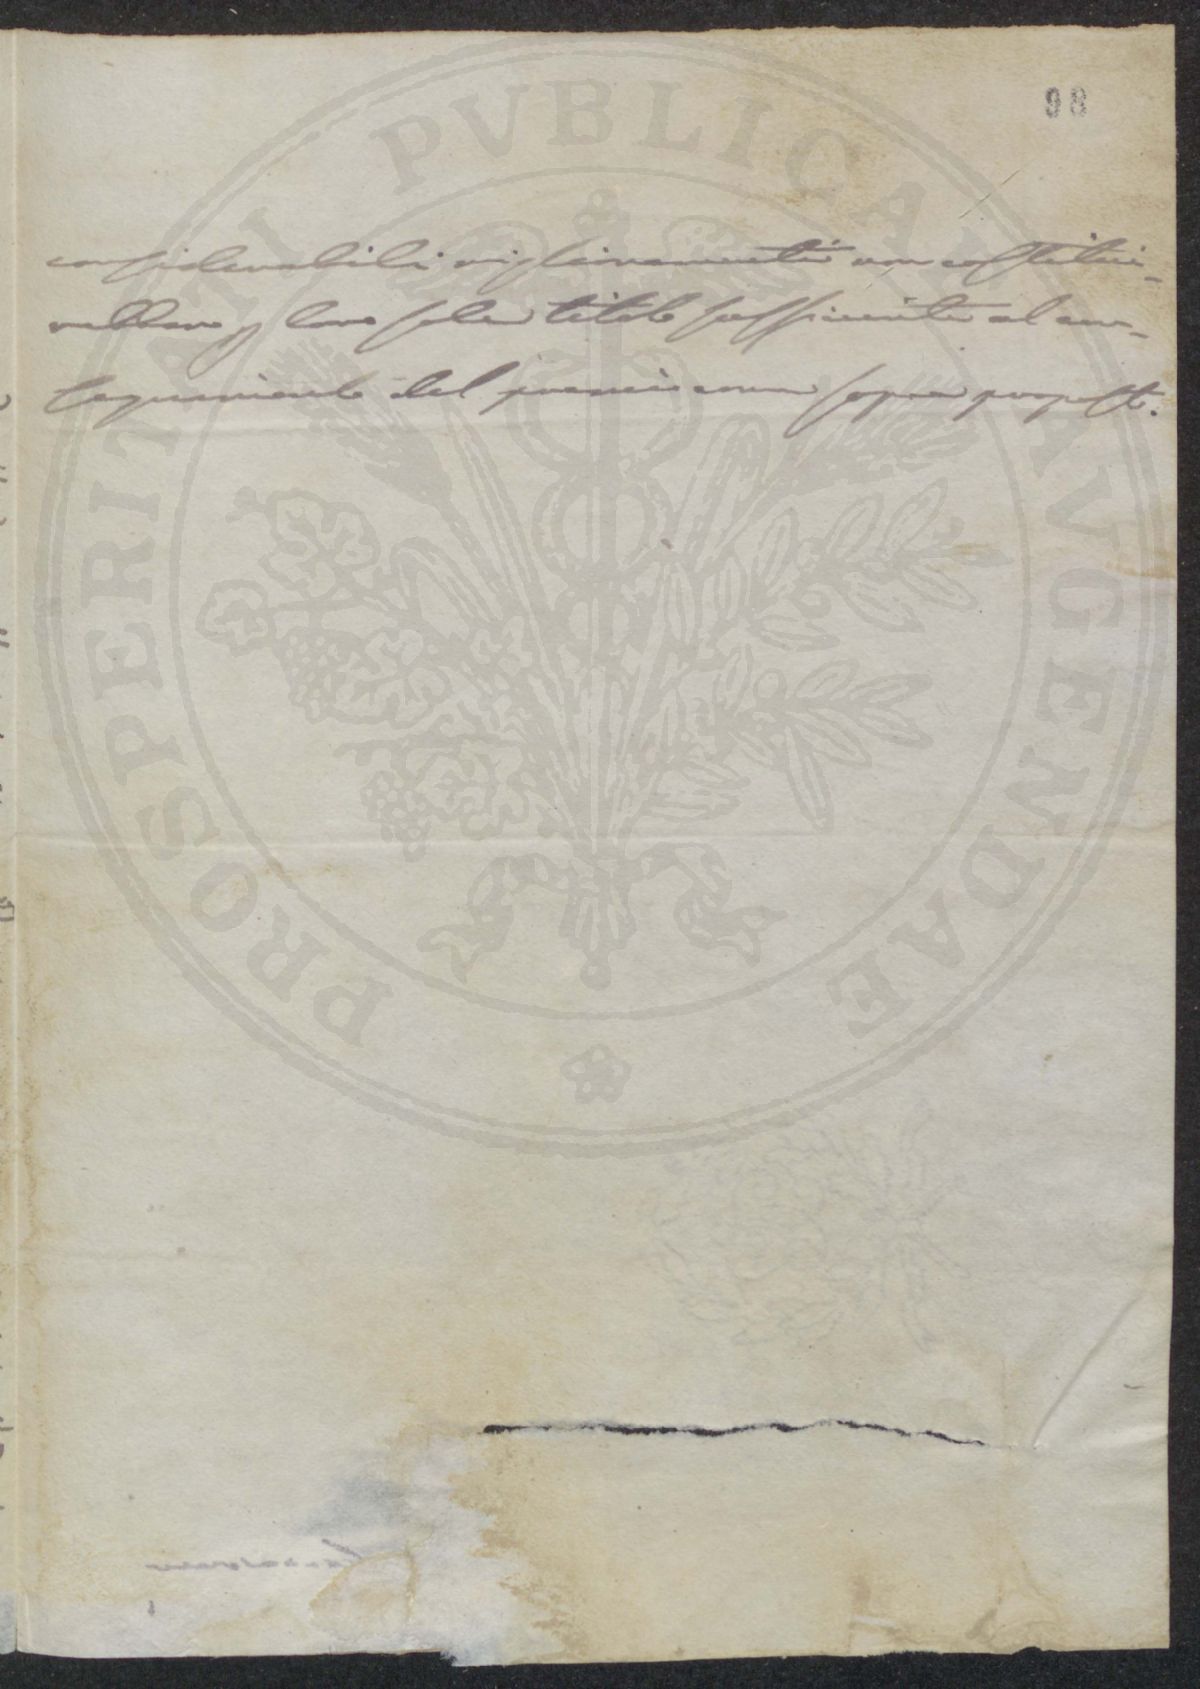 98
considerabili miglioramenti non costitui-
rebbero p loro solo titolo sufficiente al con-
seguimento del premio come sopra proposto.
PROSPERITATI PVBLICAE AVGENDAE